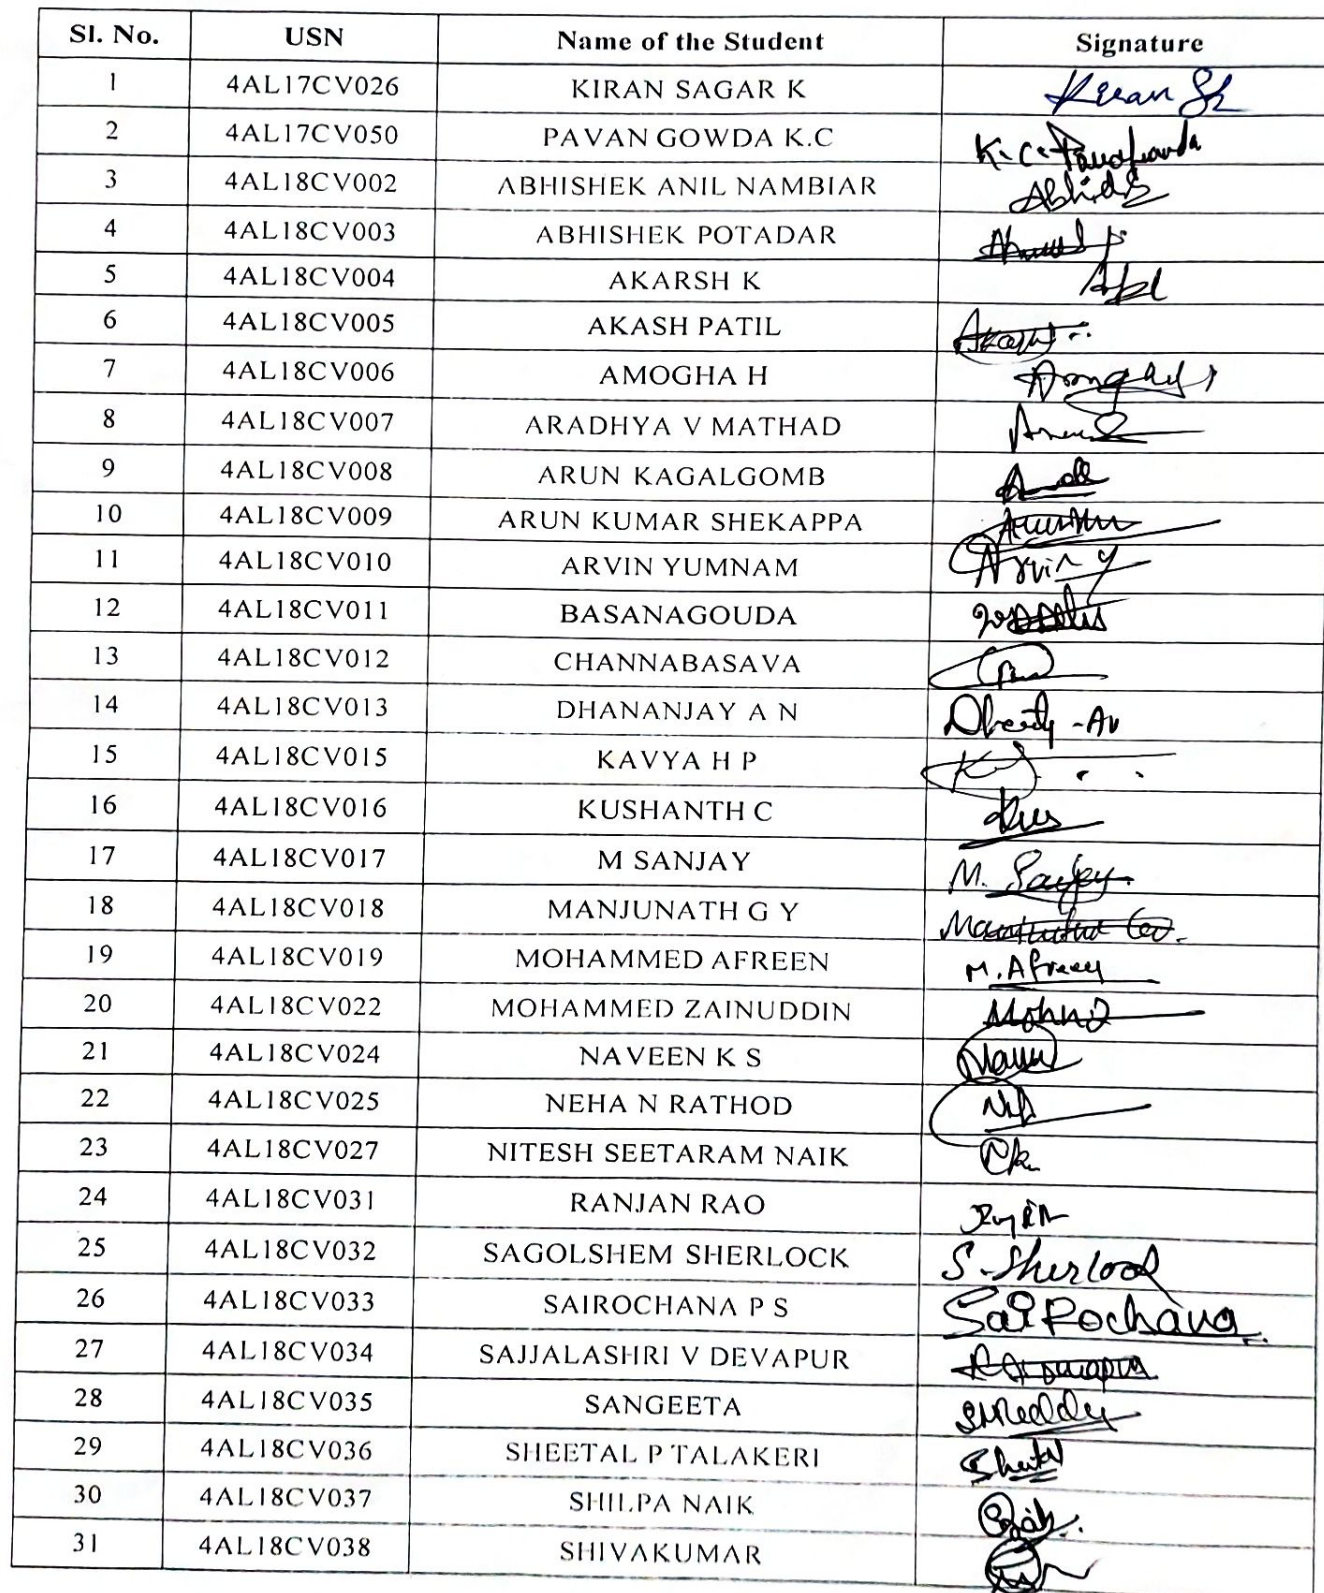 Sl. No. USN Name of the Student Signature
1 4AL17CV026 KIRAN SAGAR K Kiran Sk
2 4AL17CV050 PAVAN GOWDA K.C K.C.
3 4AL18CV002 ABHISHEK ANIL NAMBIAR
4 4AL18CV003 ABHISHEK POTADAR
5 4AL18CV004 AKARSH K
6 4AL18CV005 AKASH PATIL
7 4AL18CV006 AMOGHA H
8 4AL18CV007 ARADHYA V MATHAD
9 4AL18CV008 ARUN KAGALGOMB
10 4AL18CV009 ARUN KUMAR SHEKAPPA
11 4AL18CV010 ARVIN YUMNAM Arvin y
12 4AL18CV011 BASANAGOUDA
13 4AL18CV012 CHANNABASAVA
14 4AL18CV013 DHANANJAY A N
15 4AL18CV015 KAVYA H P
16 4AL18CV016 KUSHANTH C
17 4AL18CV017 M SANJAY M. Sanjay
18 4AL18CV018 MANJUNATH G Y
19 4AL18CV019 MOHAMMED AFREEN M. Afreen
20 4AL18CV022 MOHAMMED ZAINUDDIN
21 4AL18CV024 NAVEEN K S
22 4AL18CV025 NEHA N RATHOD
23 4AL18CV027 NITESH SEETARAM NAIK
24 4AL18CV031 RANJAN RAO
25 4AL18CV032 SAGOLSHEM SHERLOCK S. Sherlock
26 4AL18CV033 SAIROCHANA P S SaiRochana
27 4AL18CV034 SAJJALASHRI V DEVAPUR
28 4AL18CV035 SANGEETA SMReddy
29 4AL18CV036 SHEETAL P TALAKERI Sheetal
30 4AL18CV037 SHILPA NAIK
31 4AL18CV038 SHIVAKUMAR